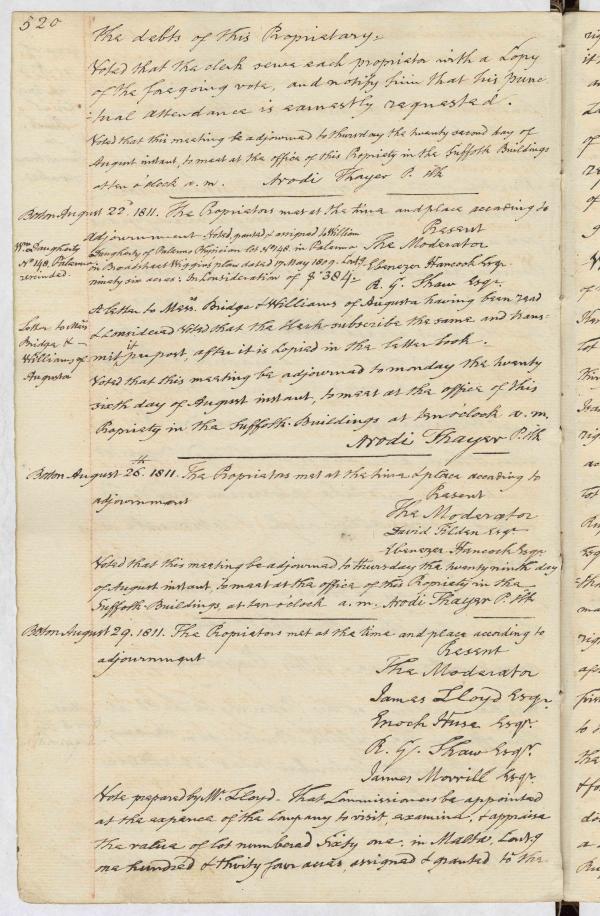 520
the debts of this Propriatary.
Voted that the clerk serve each proprietor with a Copy
of the foregoing vote, and notify him that his punc
-tual attendance is earnestly requested.
Voted that this meeting be adjourned to thursday the twenty second day of
August instant, to meet at the office of this Propriety in the Suffolk Buildings
at ten o'clock a.m. Arodi Thayer P. Clk
Boston August 22d. 1811. The Proprietors met at the time and place according to
adjournment
Present
The Moderator
Ebenezer Hancock Esqr
R. G. Shaw Esqr.
Wm. Daugherty
No. 148, Palermo
Voted, granted & assigned to William
Daugherty of Palermo Physician lot No. 148. in Palermo
in Broadstreet Wiggins plan dated 17 May 1809. Contg.
ninety six acres. In Consideration of $384.
Letter to Messrs
Bridge &
Williams, of
Augusta
A letter to Messrs. Bridge & Williams of Augusta having been read
& Considered Voted that the Clerk subscribe the same and trans-
mit it per post, after it is Copied in the letter book.
Voted that this meeting be adjourned to monday the twenty
sixth day of August instant, to meet at the office of this
Propriety in the Suffolk-Buildings at ten o'clock a.m.
Arodi Thayer P. Clk
Boston August 26th. 1811. The Proprietors met at the time & place according to
adjournment
Present
The Moderator
David Tilden Esqr
Ebenezer Hancock Esqr.
Voted that this meeting be adjourned to thursday the twenty ninth day
of August instant, to meet at the office of this Propriety in the
Suffolk-Buildings, at ten o'clock a.m. Arodi Thayer P. Clk
Boston August 29. 1811. The Proprietors met at the time and place according to
adjournment
Present
The Moderator
James Lloyd Esqr.
Enoch Huse Esqr.
R. G. Shaw Esqr.
James Morrill Esqr.
Vote prepared by Mr. Lloyd - That Commissioners be appointed
at the expence of the Company to visit, examine, & appraise
the value of lot numbered Sixty one, in Malta, Contg
one hundred & thirty four acres, assigned & granted to the